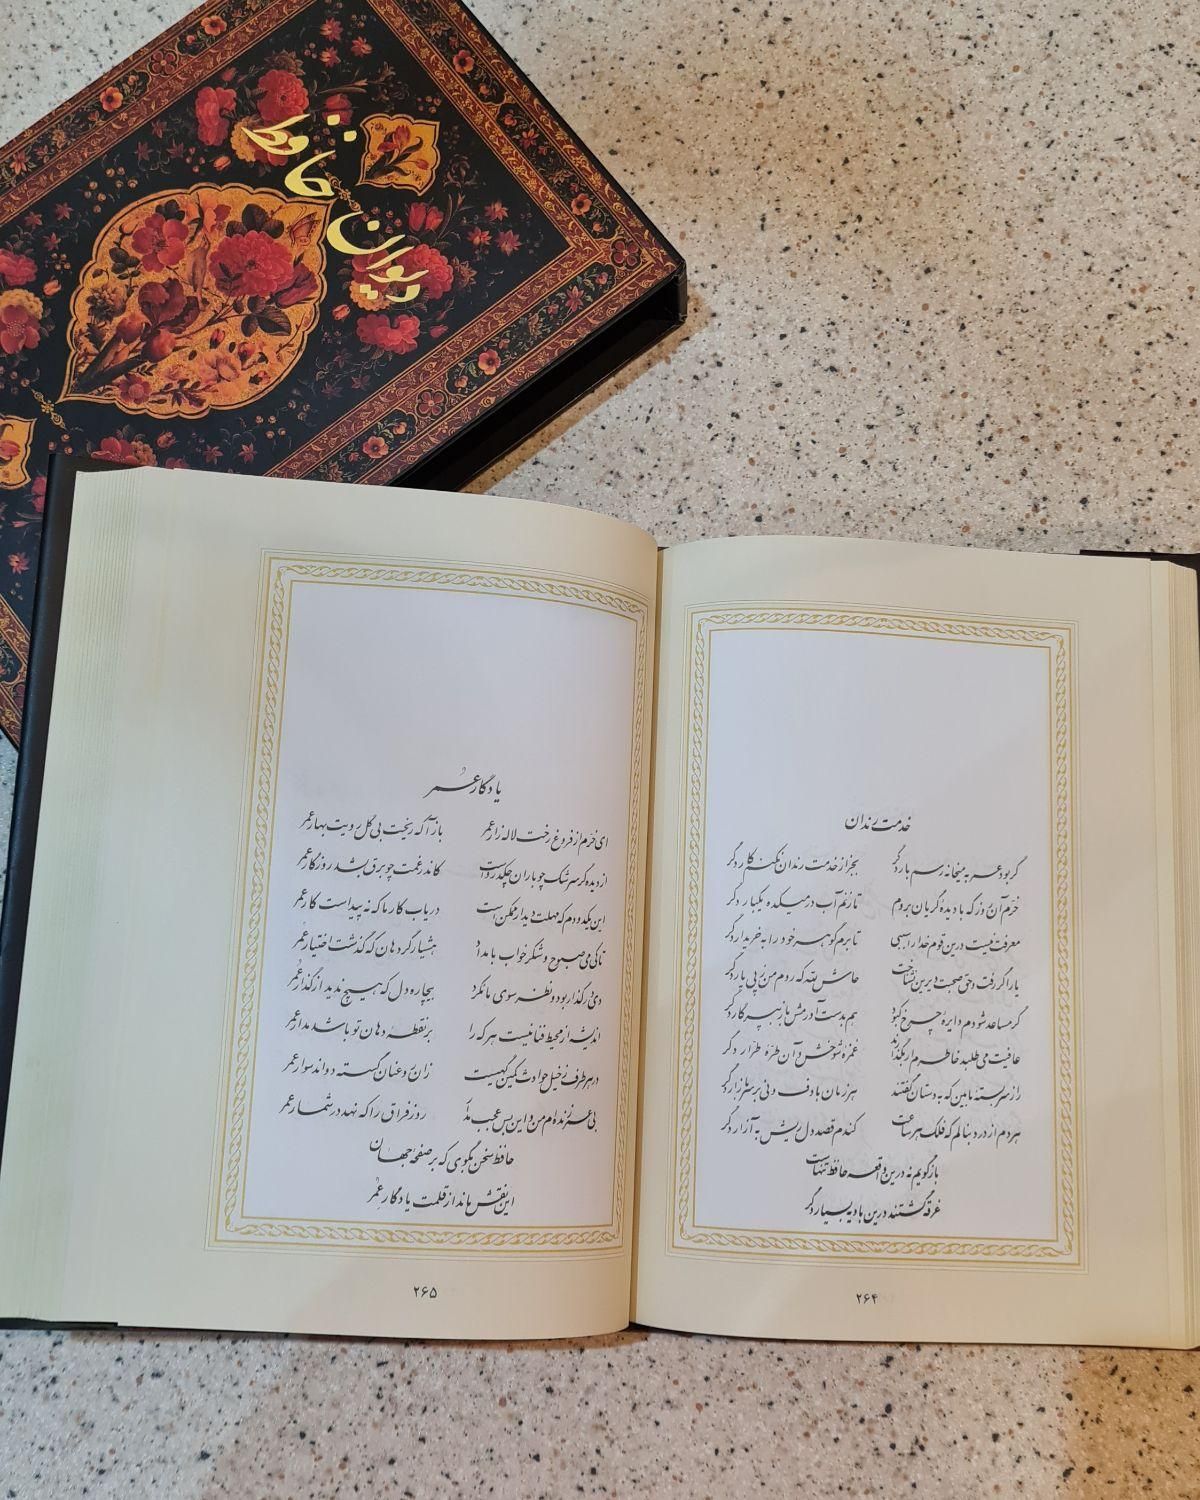 دیوان حافظ
خدمت رندان
گر بود عمر به میخانه رسم بار دگر بجز از خدمت رندان نکنم کار دگر
خرّم آن روز که با دیدهٔ گریان بروم تا زنم آب در میکده یکبار دگر
معرفت نیست درین قوم خدا را سببی تا برم گوهر خود را به خریدار دگر
یار اگر رفت و حق صحبت دیرین نشناخت حاش لله که روم من ز پی یار دگر
گر مساعد شودم دایرهٔ چرخ کبود هم بدست آورمش باز به پرگار دگر
عافیت می طلبد خاطرم ار بگذارند غمزه شوخش و آن طرّه طرّار دگر
راز سربسته ما بین که به دستان گفتند هر زمان با دف و نی بر سر بازار دگر
هر دم از درد بنالم که فلک هر ساعت کندم قصد دل ریش به آزار دگر
باز گویم نه درین واقعه حافظ تنهاست
غرقه گشتند درین بادیه بسیار دگر
۲۶۴
یادگار عمر
ای خرّم از فروغ رخت لاله زار عمر باز آ که ریخت بی گل رویت بهار عمر
از دیده گر سرشک چو باران چکد رواست کاندر غمت چو برق بشد روزگار عمر
این یکدو دم که مهلت دیدار ممکن است دریاب کار ما که نه پیداست کار عمر
تا کی می صبوح و شکر خواب بامداد هشیار گرد هان که گذشت اختیار عمر
دی در گذار بود و نظر سوی ما نکرد بیچاره دل که هیچ ندید از گذار عمر
اندیشه از محیط فنا نیست هر که را بر نقطه دهان تو باشد مدار عمر
در هر طرف ز خیل حوادث کمین گهیست زان رو عنان گسسته دواند سوار عمر
بی عمر زنده ام من و این بس عجب مدار روز فراق را که نهد در شمار عمر
حافظ سخن بگوی که بر صفحه جهان
این نقش ماند از قلمت یادگار عمر
۲۶۵